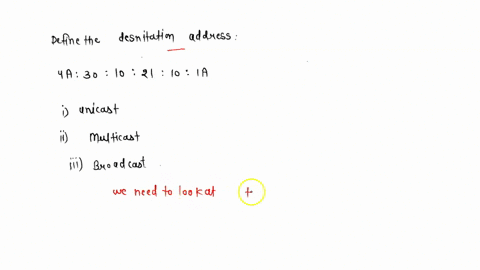 Define the desnitation address:
4A : 30 : 10 : 21 : 10 : 1A
i) unicast
ii) Multicast
iii) Broadcast
we need to look at t